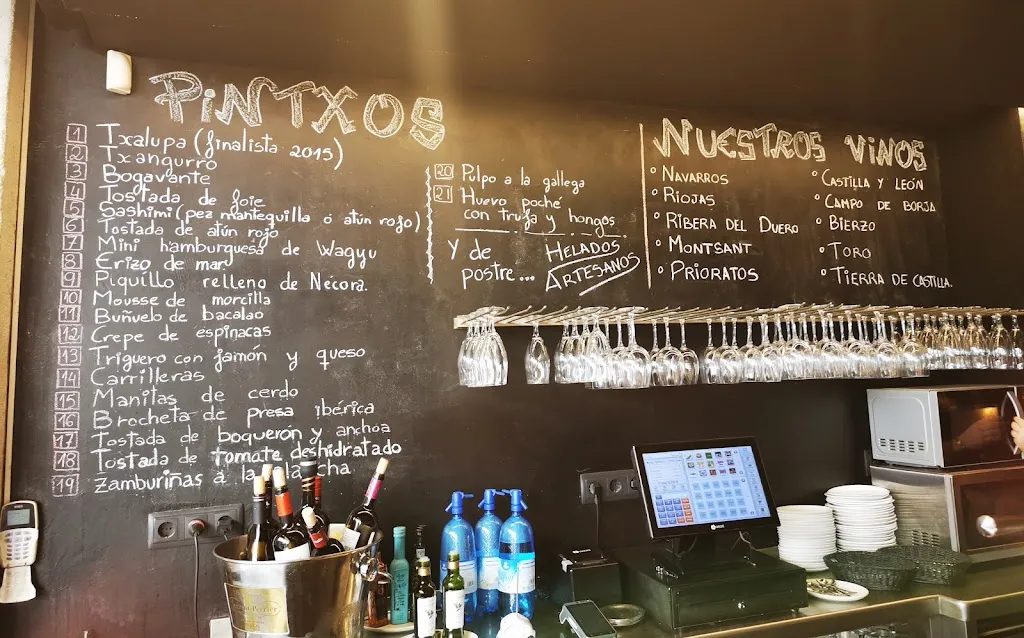 PiNTXOS
1 Txalupa (finalista 2015)
2 Txangurro
3 Bogavante
4 Tostada de foie
5 Sashimi (pez mantequilla ó atún rojo)
6 Tostada de atún rojo
7 Mini hamburguesa de Wagyu
8 Erizo de mar
9 Piquillo relleno de Nécora.
10 Mousse de morcilla
11 Buñuelo de bacalao
12 Crepe de espinacas
13 Triguero con jamón y queso
14 Carrilleras
15 Manitas de cerdo
16 Brocheta de presa ibérica
17 Tostada de boquerón y anchoa
18 Tostada de tomate deshidratado
19 Zamburiñas a la
20 Pulpo a la gallega
21 Huevo poché
con trufa y hongos.
Y de
postre...
HELADOS
ARTESANOS
NUESTROS ViNOS
° NAVARROS
° RIOJAS
° RIBERA DEL DUERO
° MONTSANT
° PRIORATOS
° CASTILLA Y LEÓN
° CAMPO DE BORJA
° BIERZO
° TORO
° TIERRA DE CASTILLA.